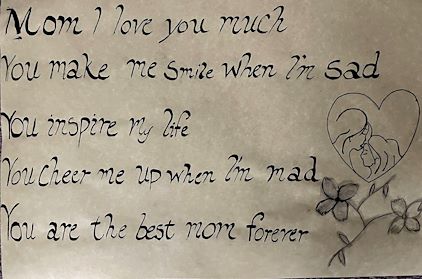 Mom I love you much
You make me smile when I'm sad
You inspire my life
You cheer me up when I'm mad
You are the best mom forever